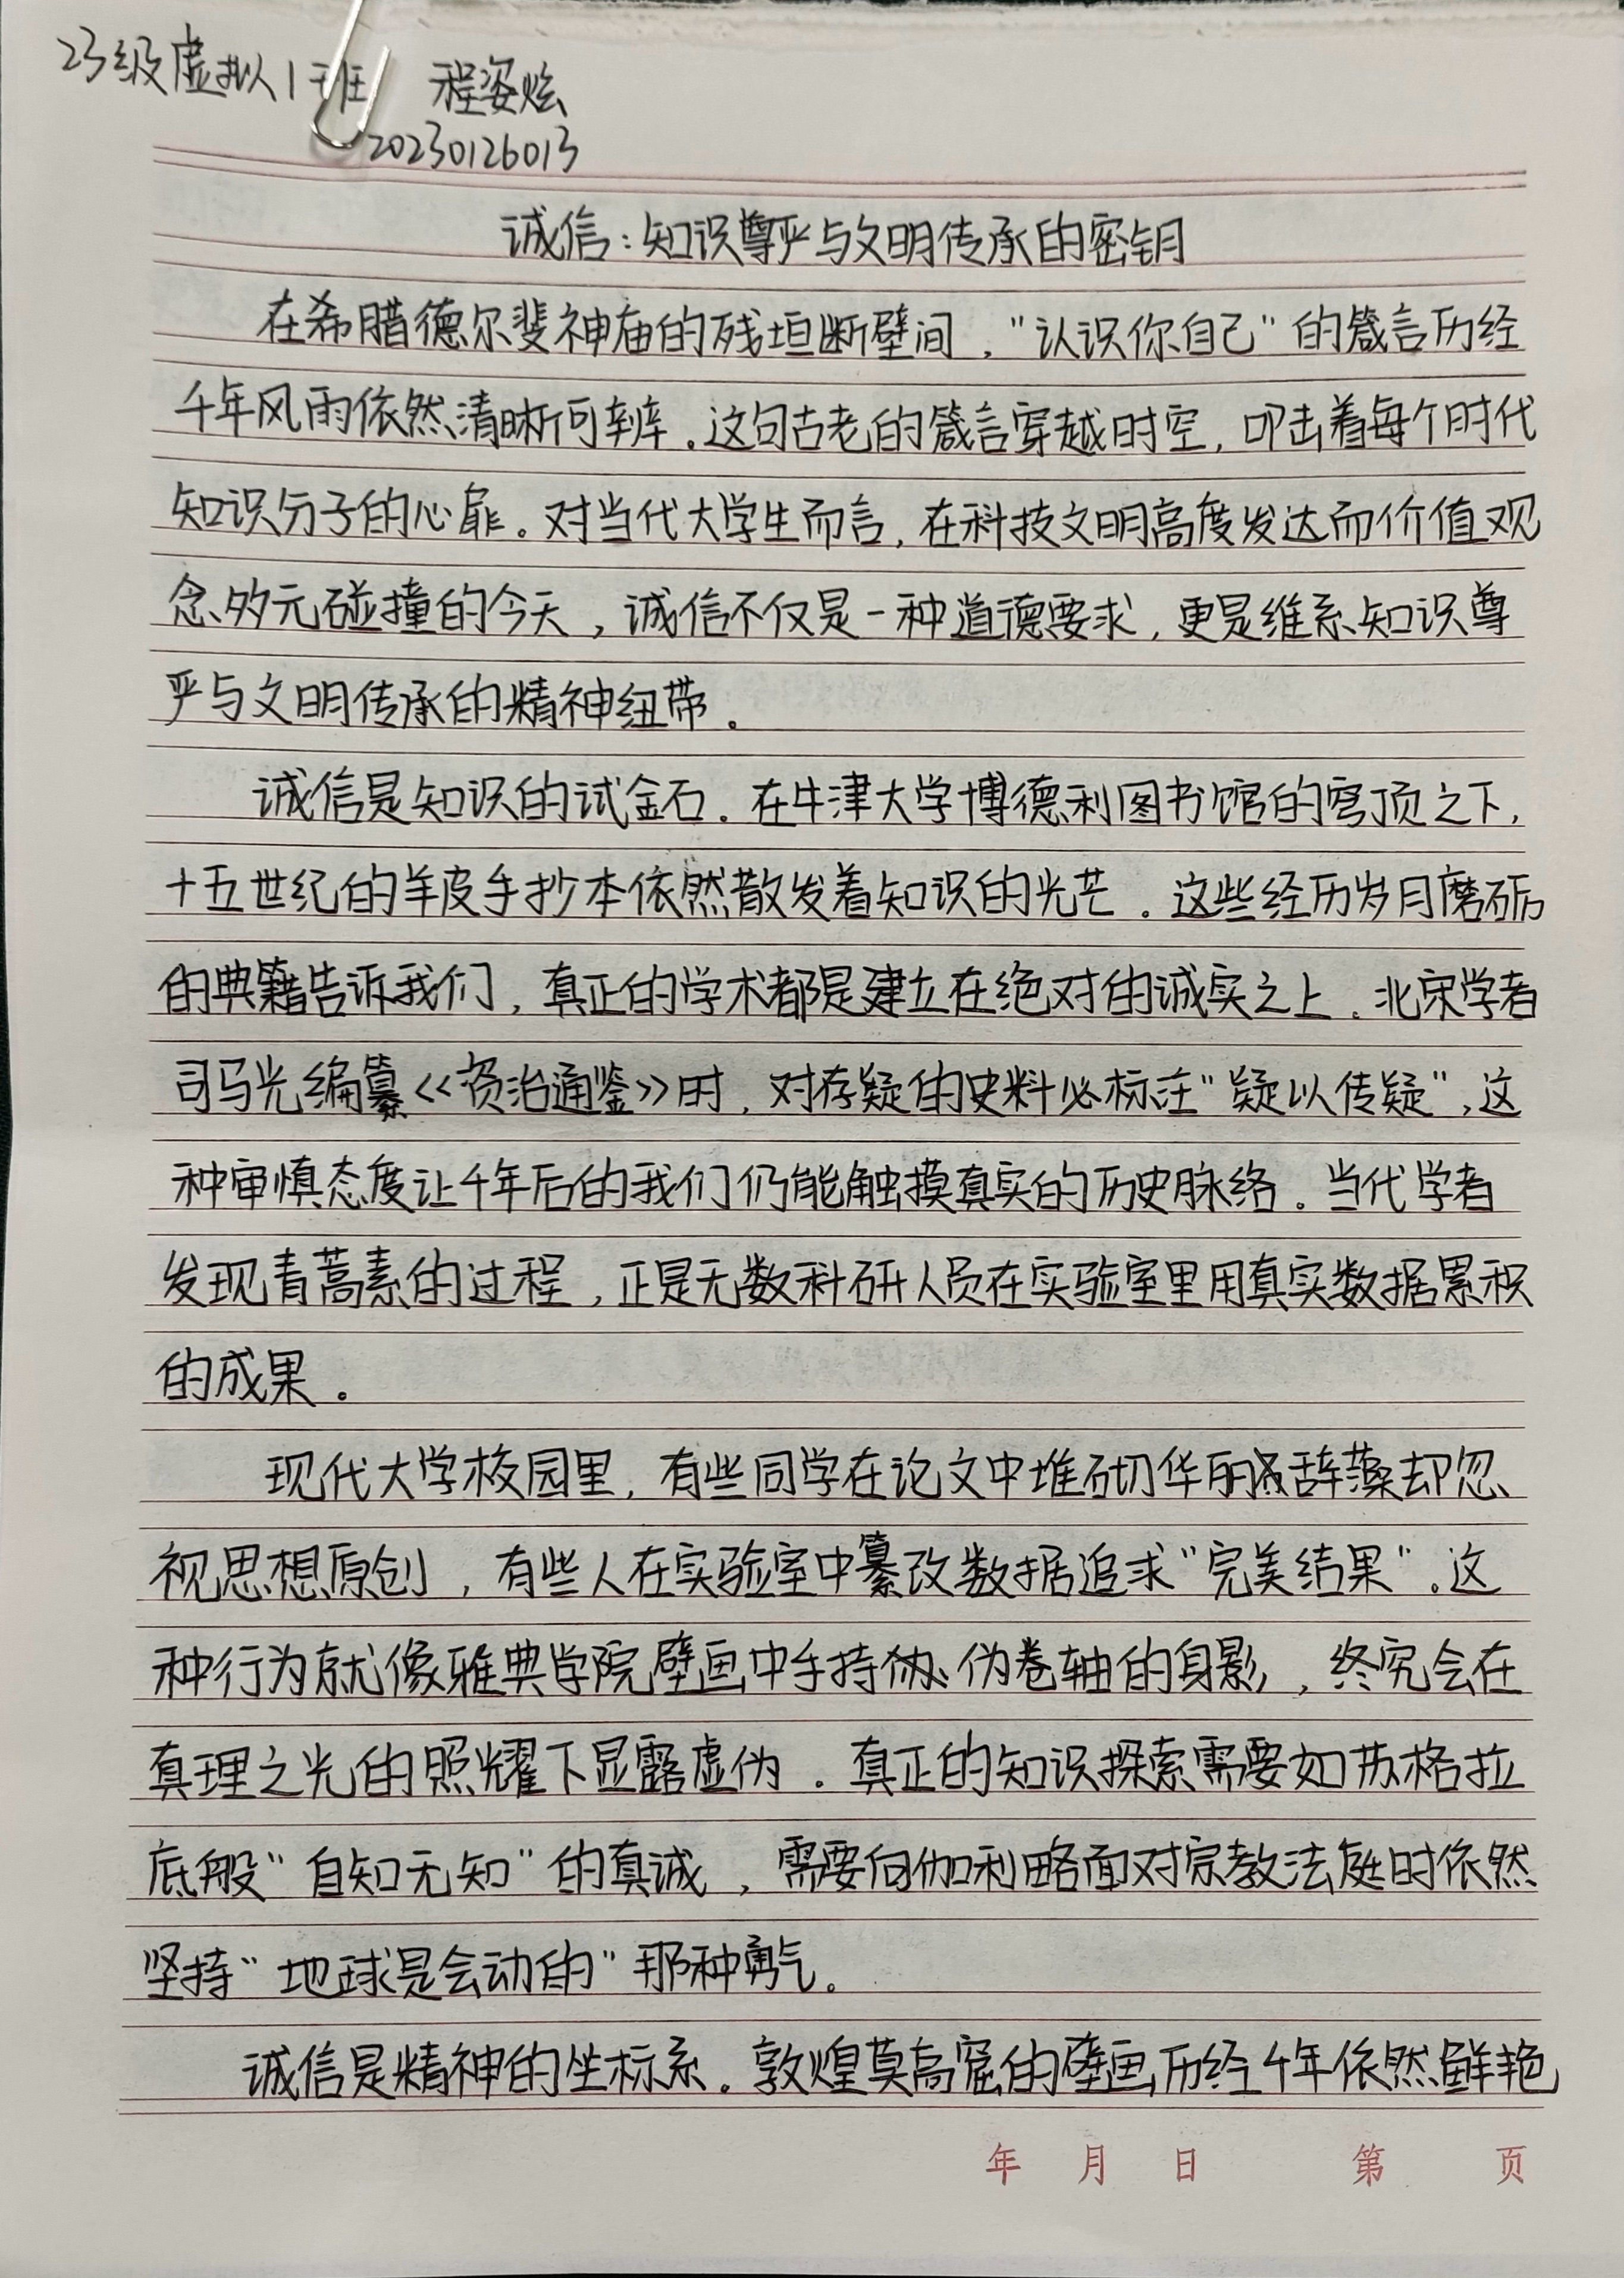 23级虚拟1班 程姿炫
20230126013
诚信：知识尊严与文明传承的密钥
在希腊德尔斐神庙的残垣断壁间，“认识你自己”的箴言历经
千年风雨依然清晰可辨。这句古老的箴言穿越时空，叩击着每个时代
知识分子的心扉。对当代大学生而言，在科技文明高度发达而价值观
念多元碰撞的今天，诚信不仅是一种道德要求，更是维系知识尊
严与文明传承的精神纽带。
诚信是知识的试金石。在牛津大学博德利图书馆的穹顶之下，
十五世纪的羊皮手抄本依然散发着知识的光芒。这些经历岁月磨砺
的典籍告诉我们，真正的学术都是建立在绝对的诚实之上。北宋学者
司马光编纂《资治通鉴》时，对存疑的史料必标注“疑以传疑”，这
种审慎态度让千年后的我们仍能触摸真实的历史脉络。当代学者
发现青蒿素的过程，正是无数科研人员在实验室里用真实数据累积
的成果。
现代大学校园里，有些同学在论文中堆砌华丽辞藻却忽
视思想原创，有些人在实验室中纂改数据追求“完美结果”。这
种行为就像雅典学院壁画中手持伪卷轴的身影，终究会在
真理之光的照耀下显露虚伪。真正的知识探索需要如苏格拉
底般“自知无知”的真诚，需要向伽利略面对宗教法庭时依然
坚持“地球是会动的”那种勇气。
诚信是精神的坐标系。敦煌莫高窟的壁画历经千年依然鲜艳
年 月 日 第 页